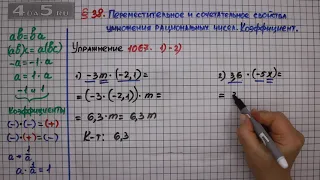 4☺5.ru
§ 38. Переместительное и сочетательное свойства
умножения рациональных чисел. Коэффициент.
ab = ba
(ab)c = a(bc)
-a = -1·a
a = 1·a
Коэффициенты
(-)·(-) = (+)
(-)·(+) = (-)
a · 1/a = 1
Упражнение 1067. 1)-2)
1) -3m·(-2,1) =
= (-3·(-2,1))·m =
= 6,3·m = 6,3m
К-т: 6,3
2) 3,6·(-5x) =
=